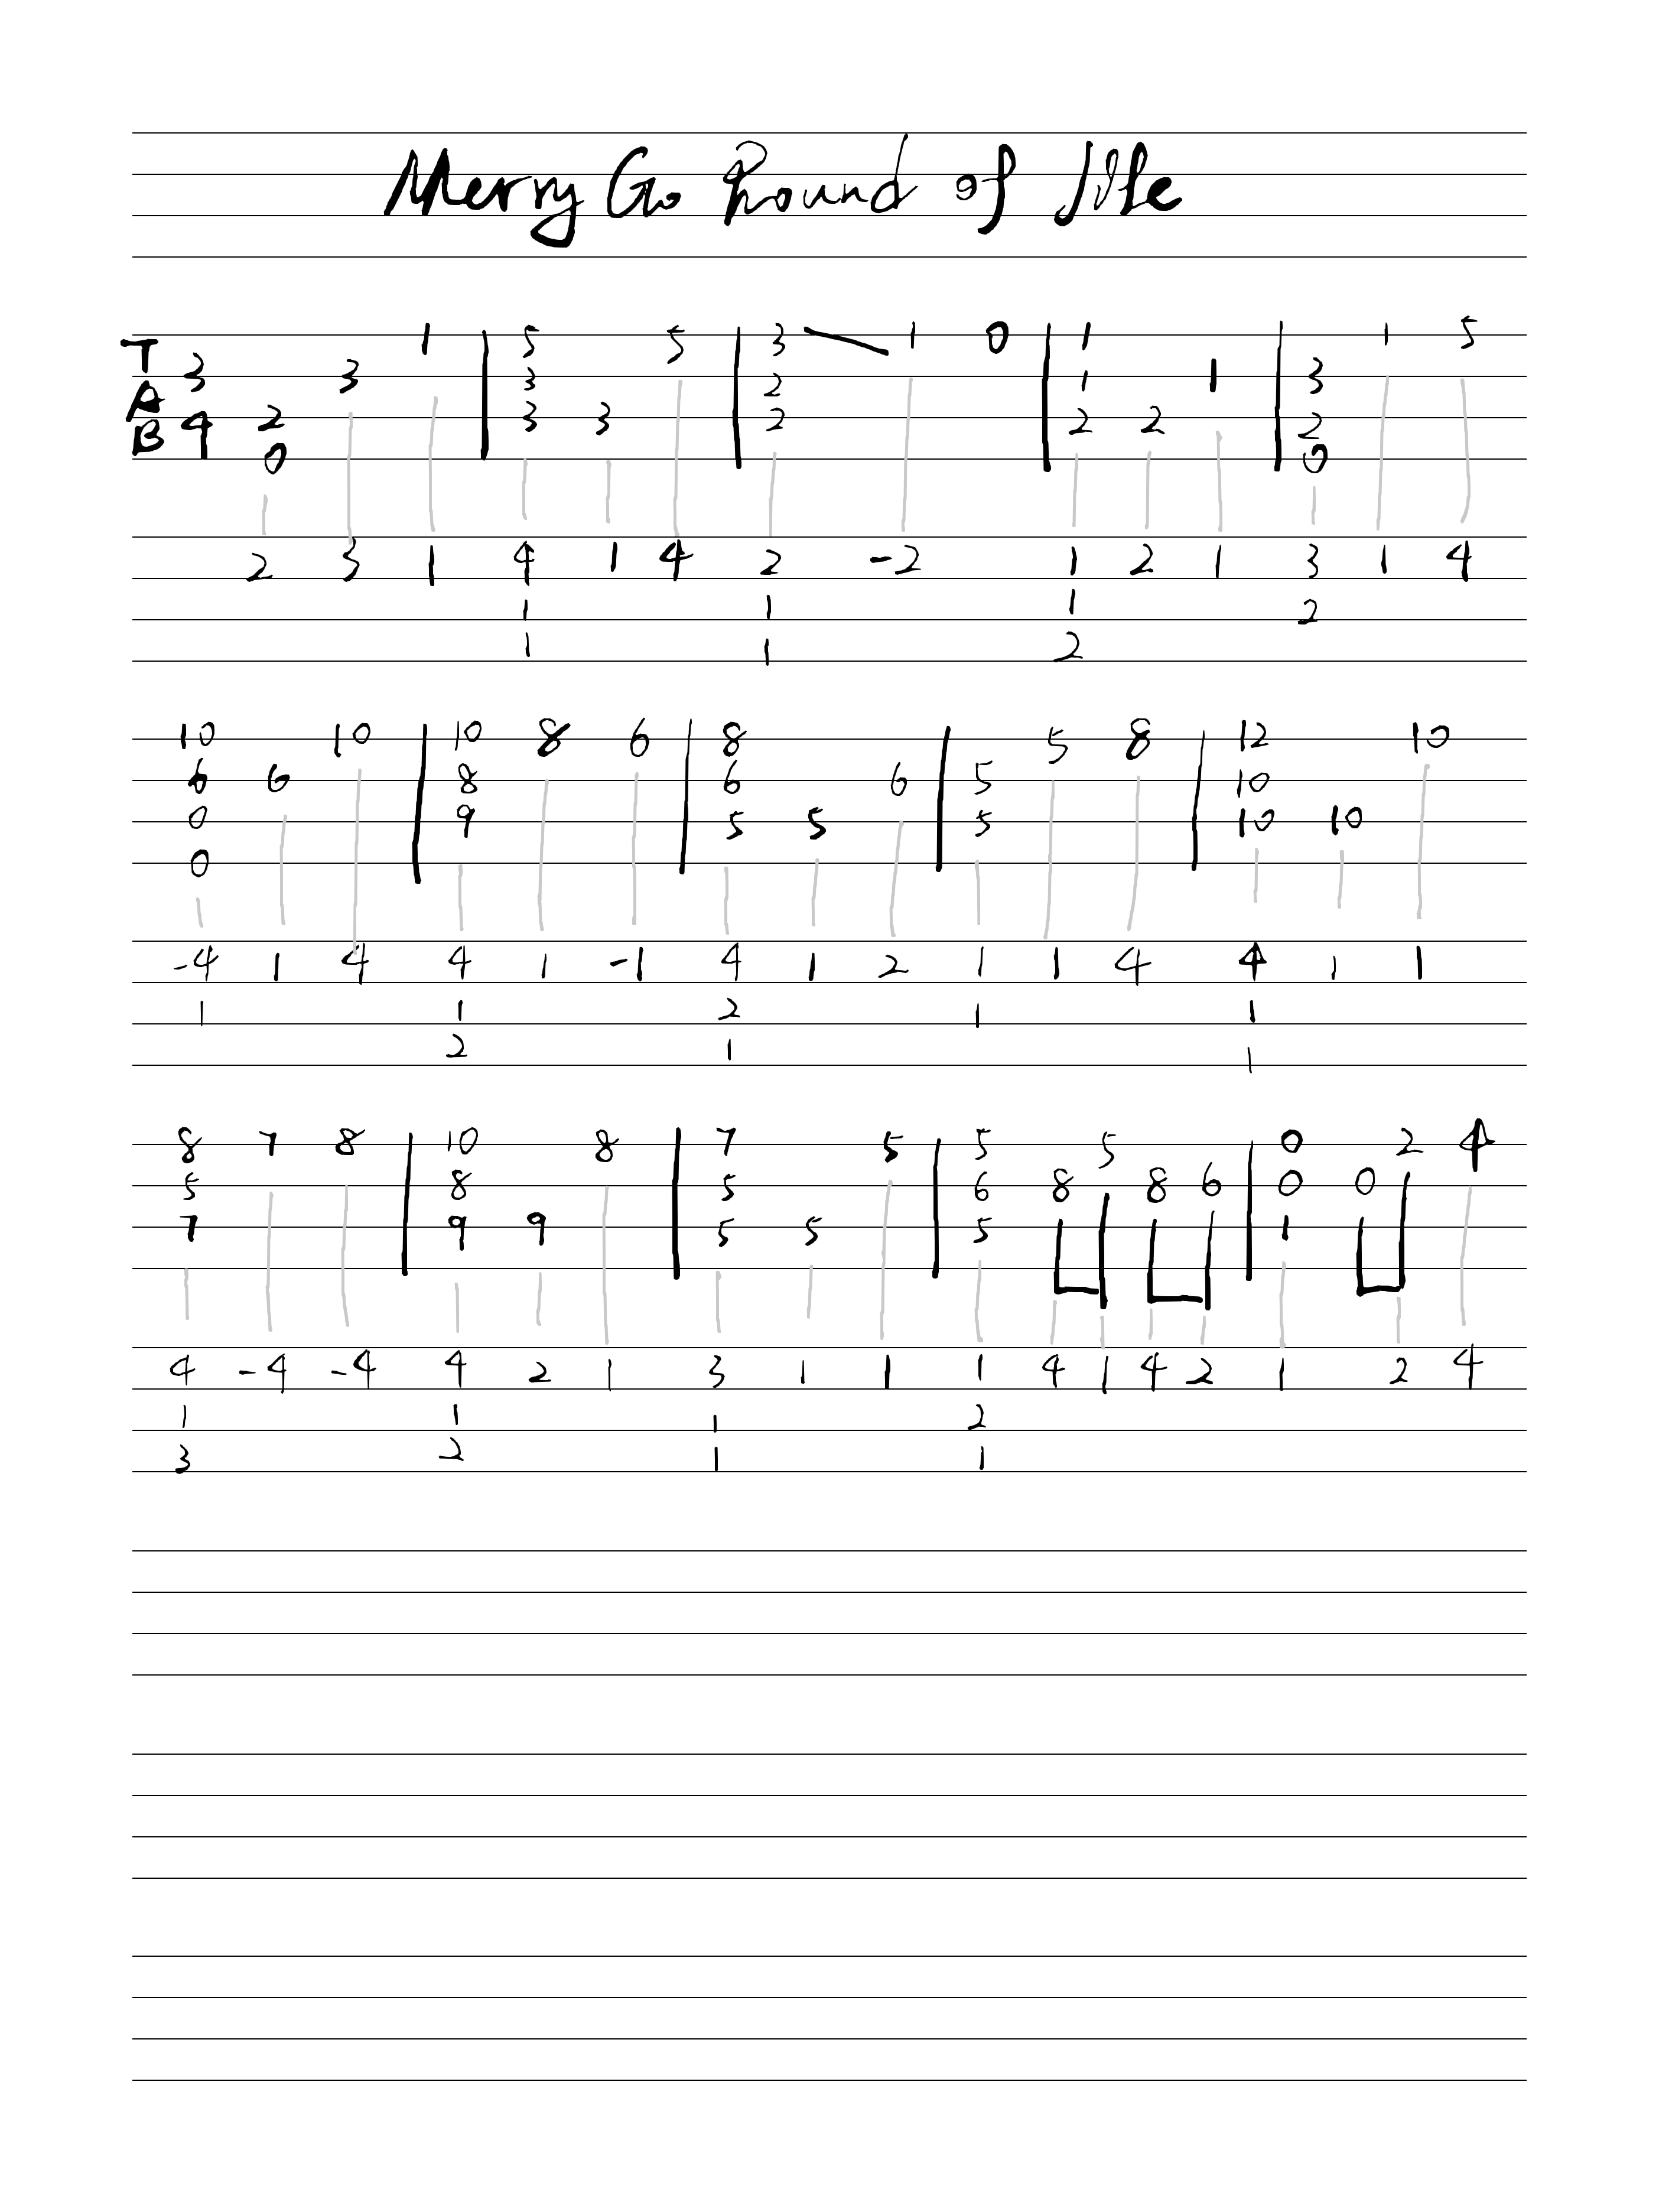 Merry Go Round of life
T 1 | 5 5 | 3 \ 1 0 | 1 | 1 5
A 3 3 | 3 | 2 | 1 1 | 3
B 4 2 | 3 3 | 2 | 2 2 | 2
0 | | | | 0
2 3 1 4 1 4 2 -2 1 2 1 3 1 4
1 1 1 2
1 1 2
10 10 | 10 8 6 | 8 | 5 8 | 12 10
6 6 | 8 | 6 6 | 5 | 10
0 | 9 | 5 5 | 5 | 10 10
0
-4 1 4 4 1 -1 4 1 2 1 1 4 4 1 1
1 1 2 1 1
2 1 1
8 7 8 | 10 8 | 7 5 | 5 5 | 0 2 4
5 | 8 | 5 | 6 8 8 6 | 0 0
7 | 9 9 | 5 5 | 5 | 1
4 -4 -4 4 2 1 3 1 1 1 4 1 4 2 1 2 4
1 1 1 2
3 2 1 1